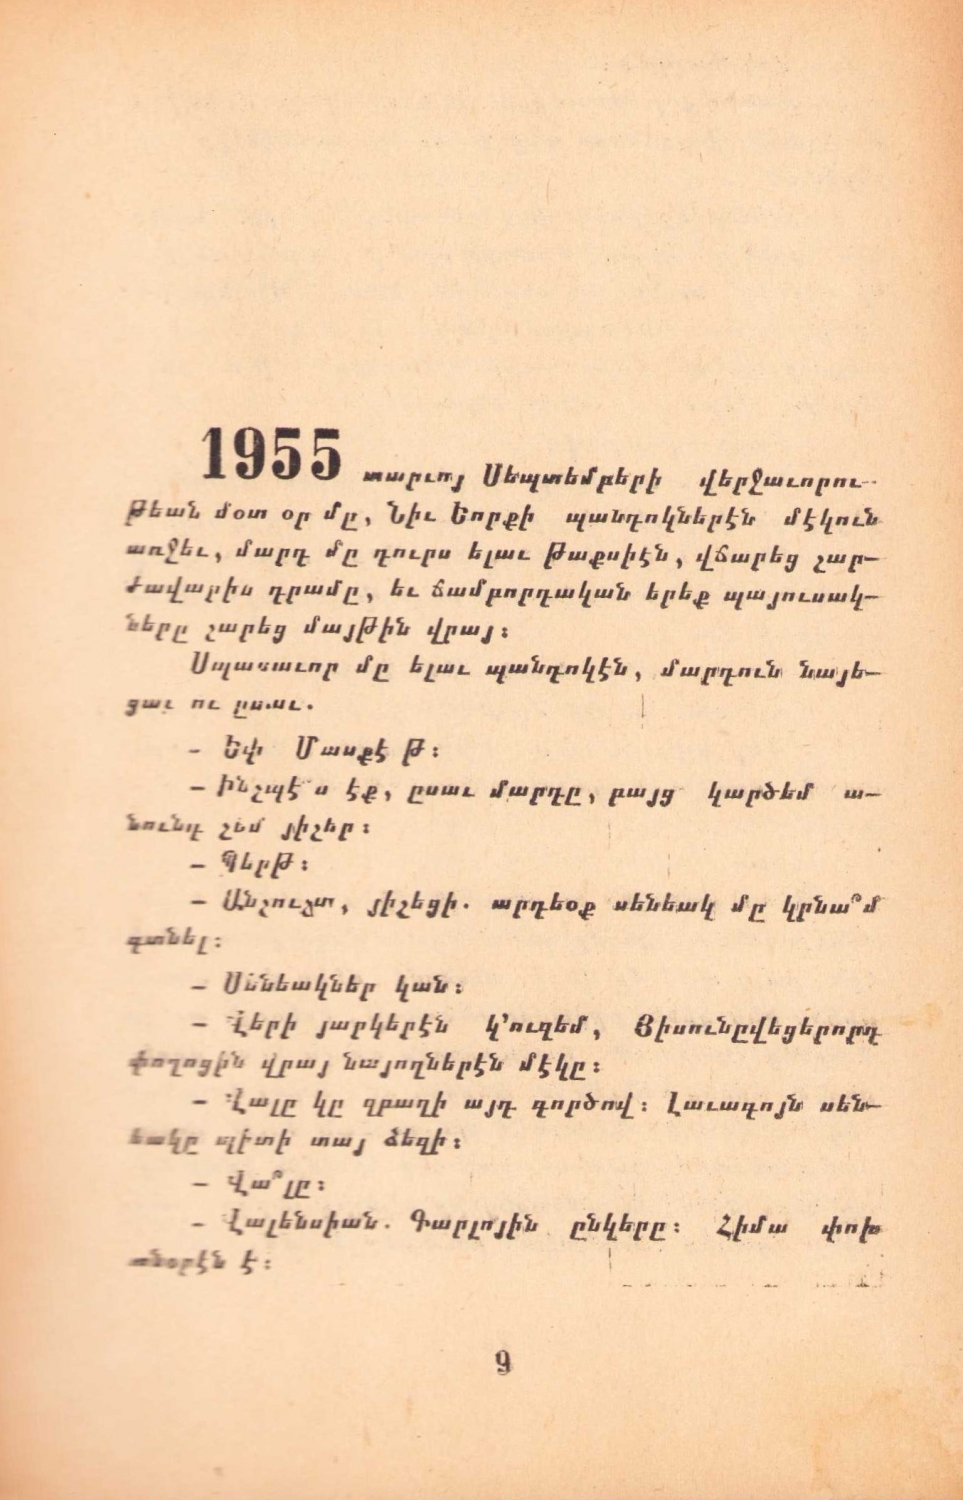 1955 տարւոյ Սեպտեմբերի վերջաւորու-
թեան մօտ օր մը, Նիւ Եորքի պանդոկներէն մէկուն
առջեւ, մարդ մը դուրս ելաւ թաքսիէն, վճարեց շար-
ժավարին դրամը, եւ ճամբորդական երեք պայուսակ-
ները շարեց մայթին վրայ:
Սպասաւոր մը ելաւ պանդոկէն, մարդուն նայե-
ցաւ ու ըսաւ.
- Եփ Մասքէ թ:
- Ինչպէ՞ս էք, ըսաւ մարդը, բայց կարծեմ ա-
նունդ չեմ յիշեր:
- Պերթ:
- Անշուշտ, յիշեցի. արդեօք սենեակ մը կրնա՞մ
գտնել:
- Սենեակներ կան:
- Վերի յարկերէն կ՚ուզեմ, Յիսունըվեցերորդ
փողոցին վրայ նայողներէն մէկը:
- Վալը կը զբաղի այդ գործով: Լաւագոյն սեն-
եակը պիտի տայ ձեզի:
- Վա՞լը:
- Վալենսիան. Գարլոյին ընկերը: Հիմա փոխ
տնօրէն է:
9